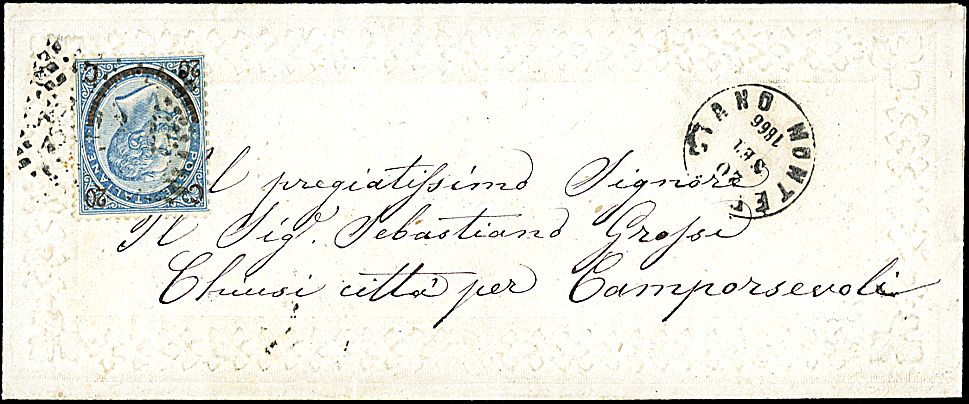 Al pregiatissimo Signore
Il Sig.r Sebastiano Grossi
Chiusi città per Camporsevoli
ANO MONTE
20 SET
1866
POSTE ITALIANE
C 20
C 20